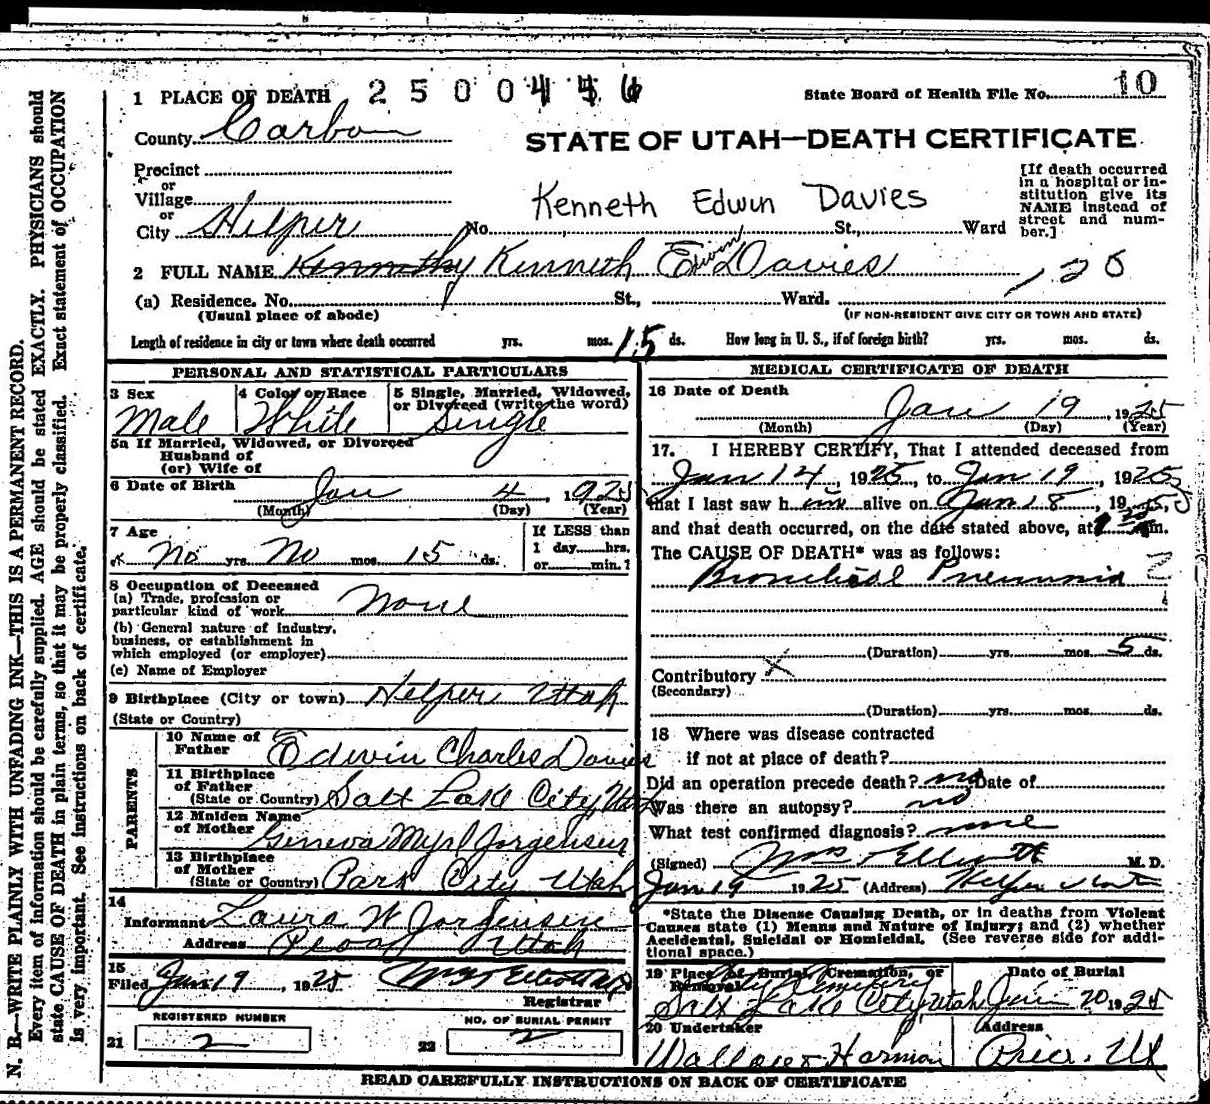 1 PLACE OF DEATH 2500446
State Board of Health File No. 10
County Carbon
STATE OF UTAH—DEATH CERTIFICATE
Precinct
or
Village
or
City Helper No. St., Ward
Kenneth Edwin Davies
[If death occurred
in a hospital or in-
stitution give its
NAME instead of
street and num-
ber.]
2 FULL NAME Kenneth Edwin Davies
(a) Residence. No. St., Ward.
(Usual place of abode)
(IF NON-RESIDENT GIVE CITY OR TOWN AND STATE)
Length of residence in city or town where death occurred yrs. mos. 15 ds. How long in U. S., if of foreign birth? yrs. mos. ds.
PERSONAL AND STATISTICAL PARTICULARS
3 Sex
Male
4 Color or Race
White
5 Single, Married, Widowed,
or Divorced (write the word)
Single
5a If Married, Widowed, or Divorced
Husband of
(or) Wife of
6 Date of Birth Jan 4, 1925
(Month) (Day) (Year)
7 Age
No yrs. No mos. 15 ds.
If LESS than
1 day....hrs.
or....min.?
8 Occupation of Deceased
(a) Trade, profession or
particular kind of work None
(b) General nature of industry,
business, or establishment in
which employed (or employer)
(c) Name of Employer
9 Birthplace (City or town) Helper Utah
(State or Country)
PARENTS
10 Name of
Father Edwin Charles Davies
11 Birthplace
of Father
(State or Country) Salt Lake City, Utah
12 Maiden Name
of Mother Geneva Myrl Jorgensen
13 Birthplace
of Mother
(State or Country) Park City Utah
14
Informant Laura W Jorgensen
Address Peoa, Utah
15
Filed Jan 19, 1925
Registrar
REGISTERED NUMBER
21 2
NO. OF BURIAL PERMIT
22 2
MEDICAL CERTIFICATE OF DEATH
16 Date of Death
Jan 19, 1925
(Month) (Day) (Year)
17. I HEREBY CERTIFY, That I attended deceased from
Jan 14, 1925, to Jan 19, 1925
that I last saw him alive on Jan 18, 1925,
and that death occurred, on the date stated above, at m.
The CAUSE OF DEATH* was as follows:
Bronchial Pneumonia
(Duration) yrs. mos. 5 ds.
Contributory X
(Secondary)
(Duration) yrs. mos. ds.
18 Where was disease contracted
if not at place of death?
Did an operation precede death? no Date of
Was there an autopsy? no
What test confirmed diagnosis? none
(Signed) Elliott M. D.
Jan 19 1925 (Address) Helper Utah
*State the Disease Causing Death, or in deaths from Violent
Causes state (1) Means and Nature of Injury; and (2) whether
Accidental, Suicidal or Homicidal. (See reverse side for addi-
tional space.)
19 Place of Burial, Cremation, or
Removal City Cemetery
Salt Lake City, Utah
Date of Burial
Jan 20 1925
20 Undertaker
Wallace & Harmon
Address
Price, Ut
READ CAREFULLY INSTRUCTIONS ON BACK OF CERTIFICATE
N. B.—WRITE PLAINLY WITH UNFADING INK—THIS IS A PERMANENT RECORD.
Every item of information should be carefully supplied. AGE should be stated EXACTLY. PHYSICIANS should
state CAUSE OF DEATH in plain terms, so that it may be properly classified. Exact statement of OCCUPATION
is very important. See instructions on back of certificate.